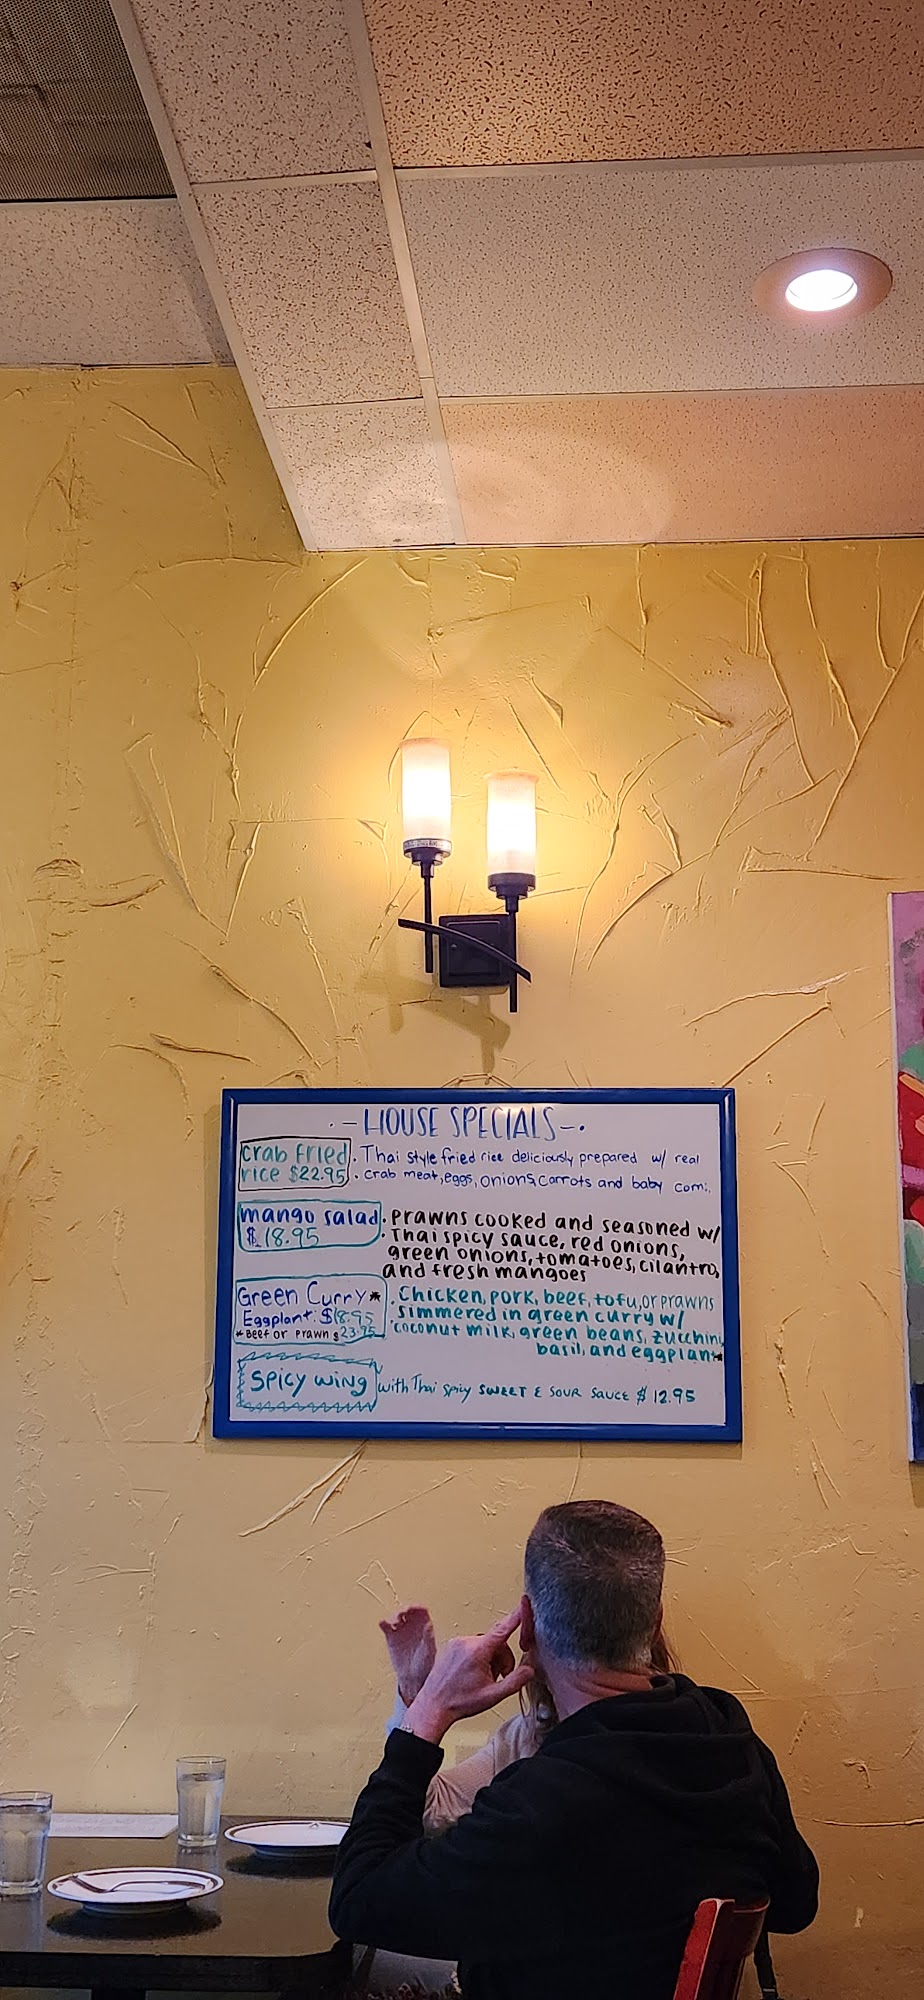 ·-HOUSE SPECIALS-·
Crab Fried
rice $22.95
· Thai style fried rice deliciously prepared w/ real
· crab meat, eggs, onions, carrots and baby corn.
mango salad
$18.95
· Prawns cooked and seasoned w/
· Thai spicy sauce, red onions,
green onions, tomatoes, cilantro,
and fresh mangoes
Green Curry*
Eggplant: $18.95
*Beef or Prawn $23.95
· Chicken, pork, beef, tofu, or prawns
· simmered in green curry w/
coconut milk, green beans, zucchini,
basil, and eggplant*
Spicy wing with Thai spicy SWEET & SOUR SAUCE $12.95